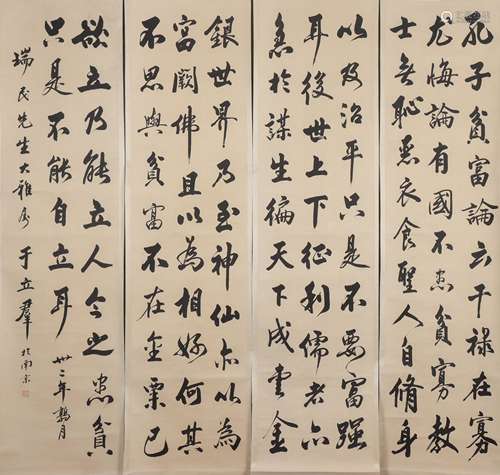 孔子貧富論云干祿在寡
尤悔論有國不患貧寡教
士無恥惡衣食聖人自脩身
以及治平只是不要富强
耳後世上下征利儒者亦
急於謀生徧天下成黄金
銀世界乃至神仙亦以為
富闕佛且以為相好何其
不思與貧富不在金粟已
欲立乃能立人今之患貧
只是不能自立耳 卅二年鶉月
瑞民先生大雅屬 于立羣於南京